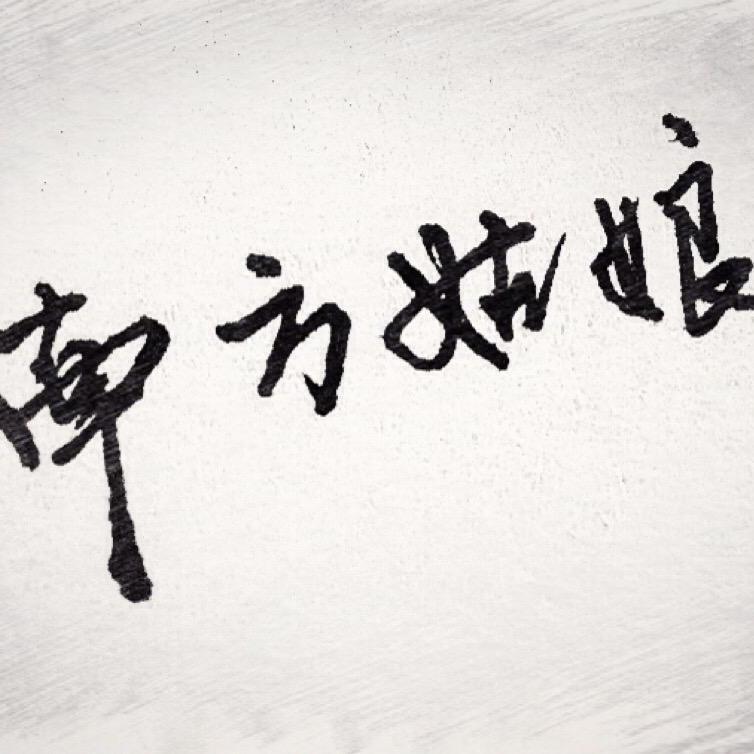 南方姑娘